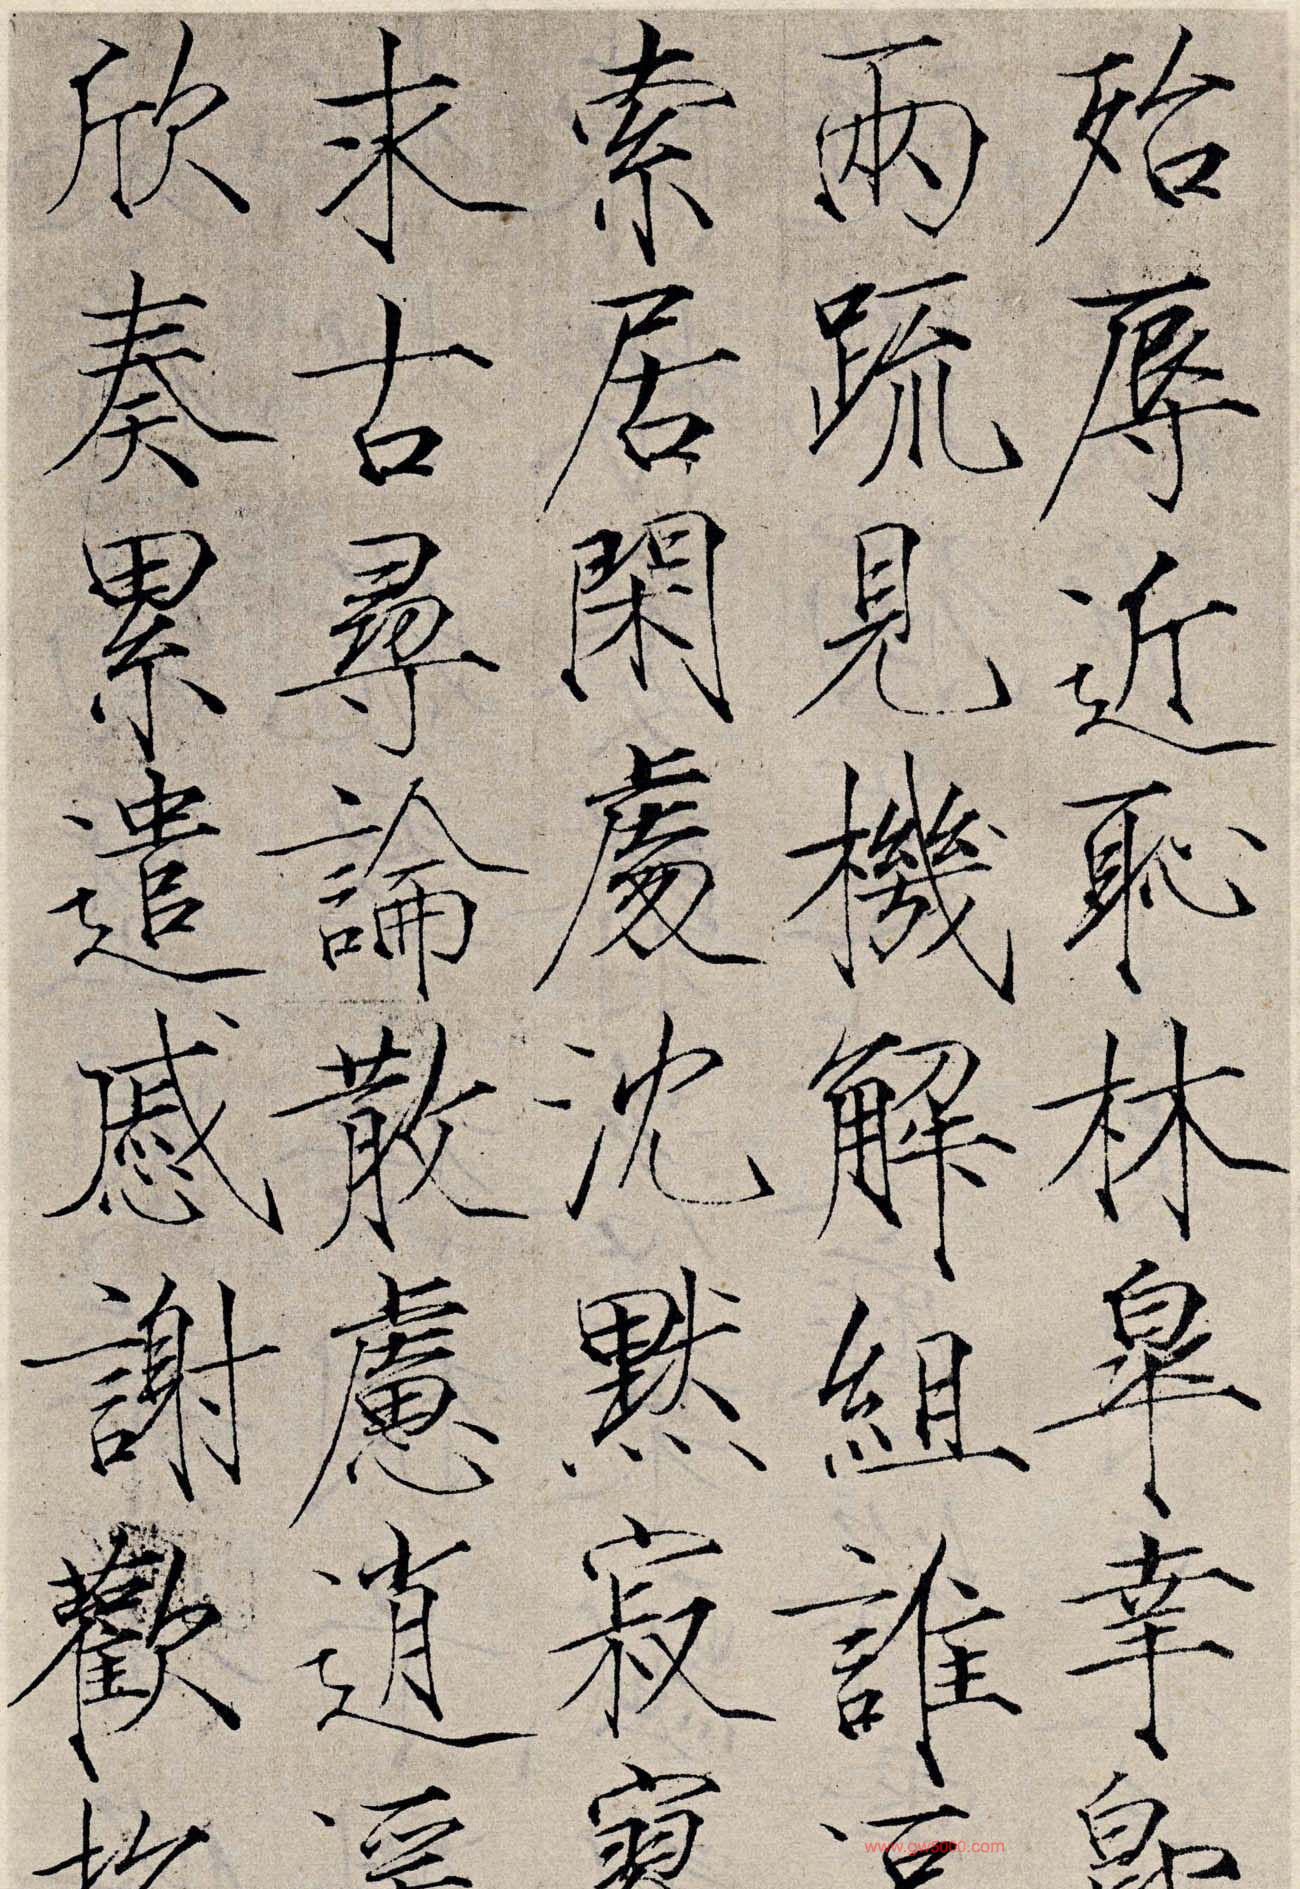 殆辱近恥林皋幸即
兩疏見機解組誰逼
索居閑處沈默寂寥
求古尋論散慮逍遙
欣奏累遣慼謝歡招
www.gw5000.com